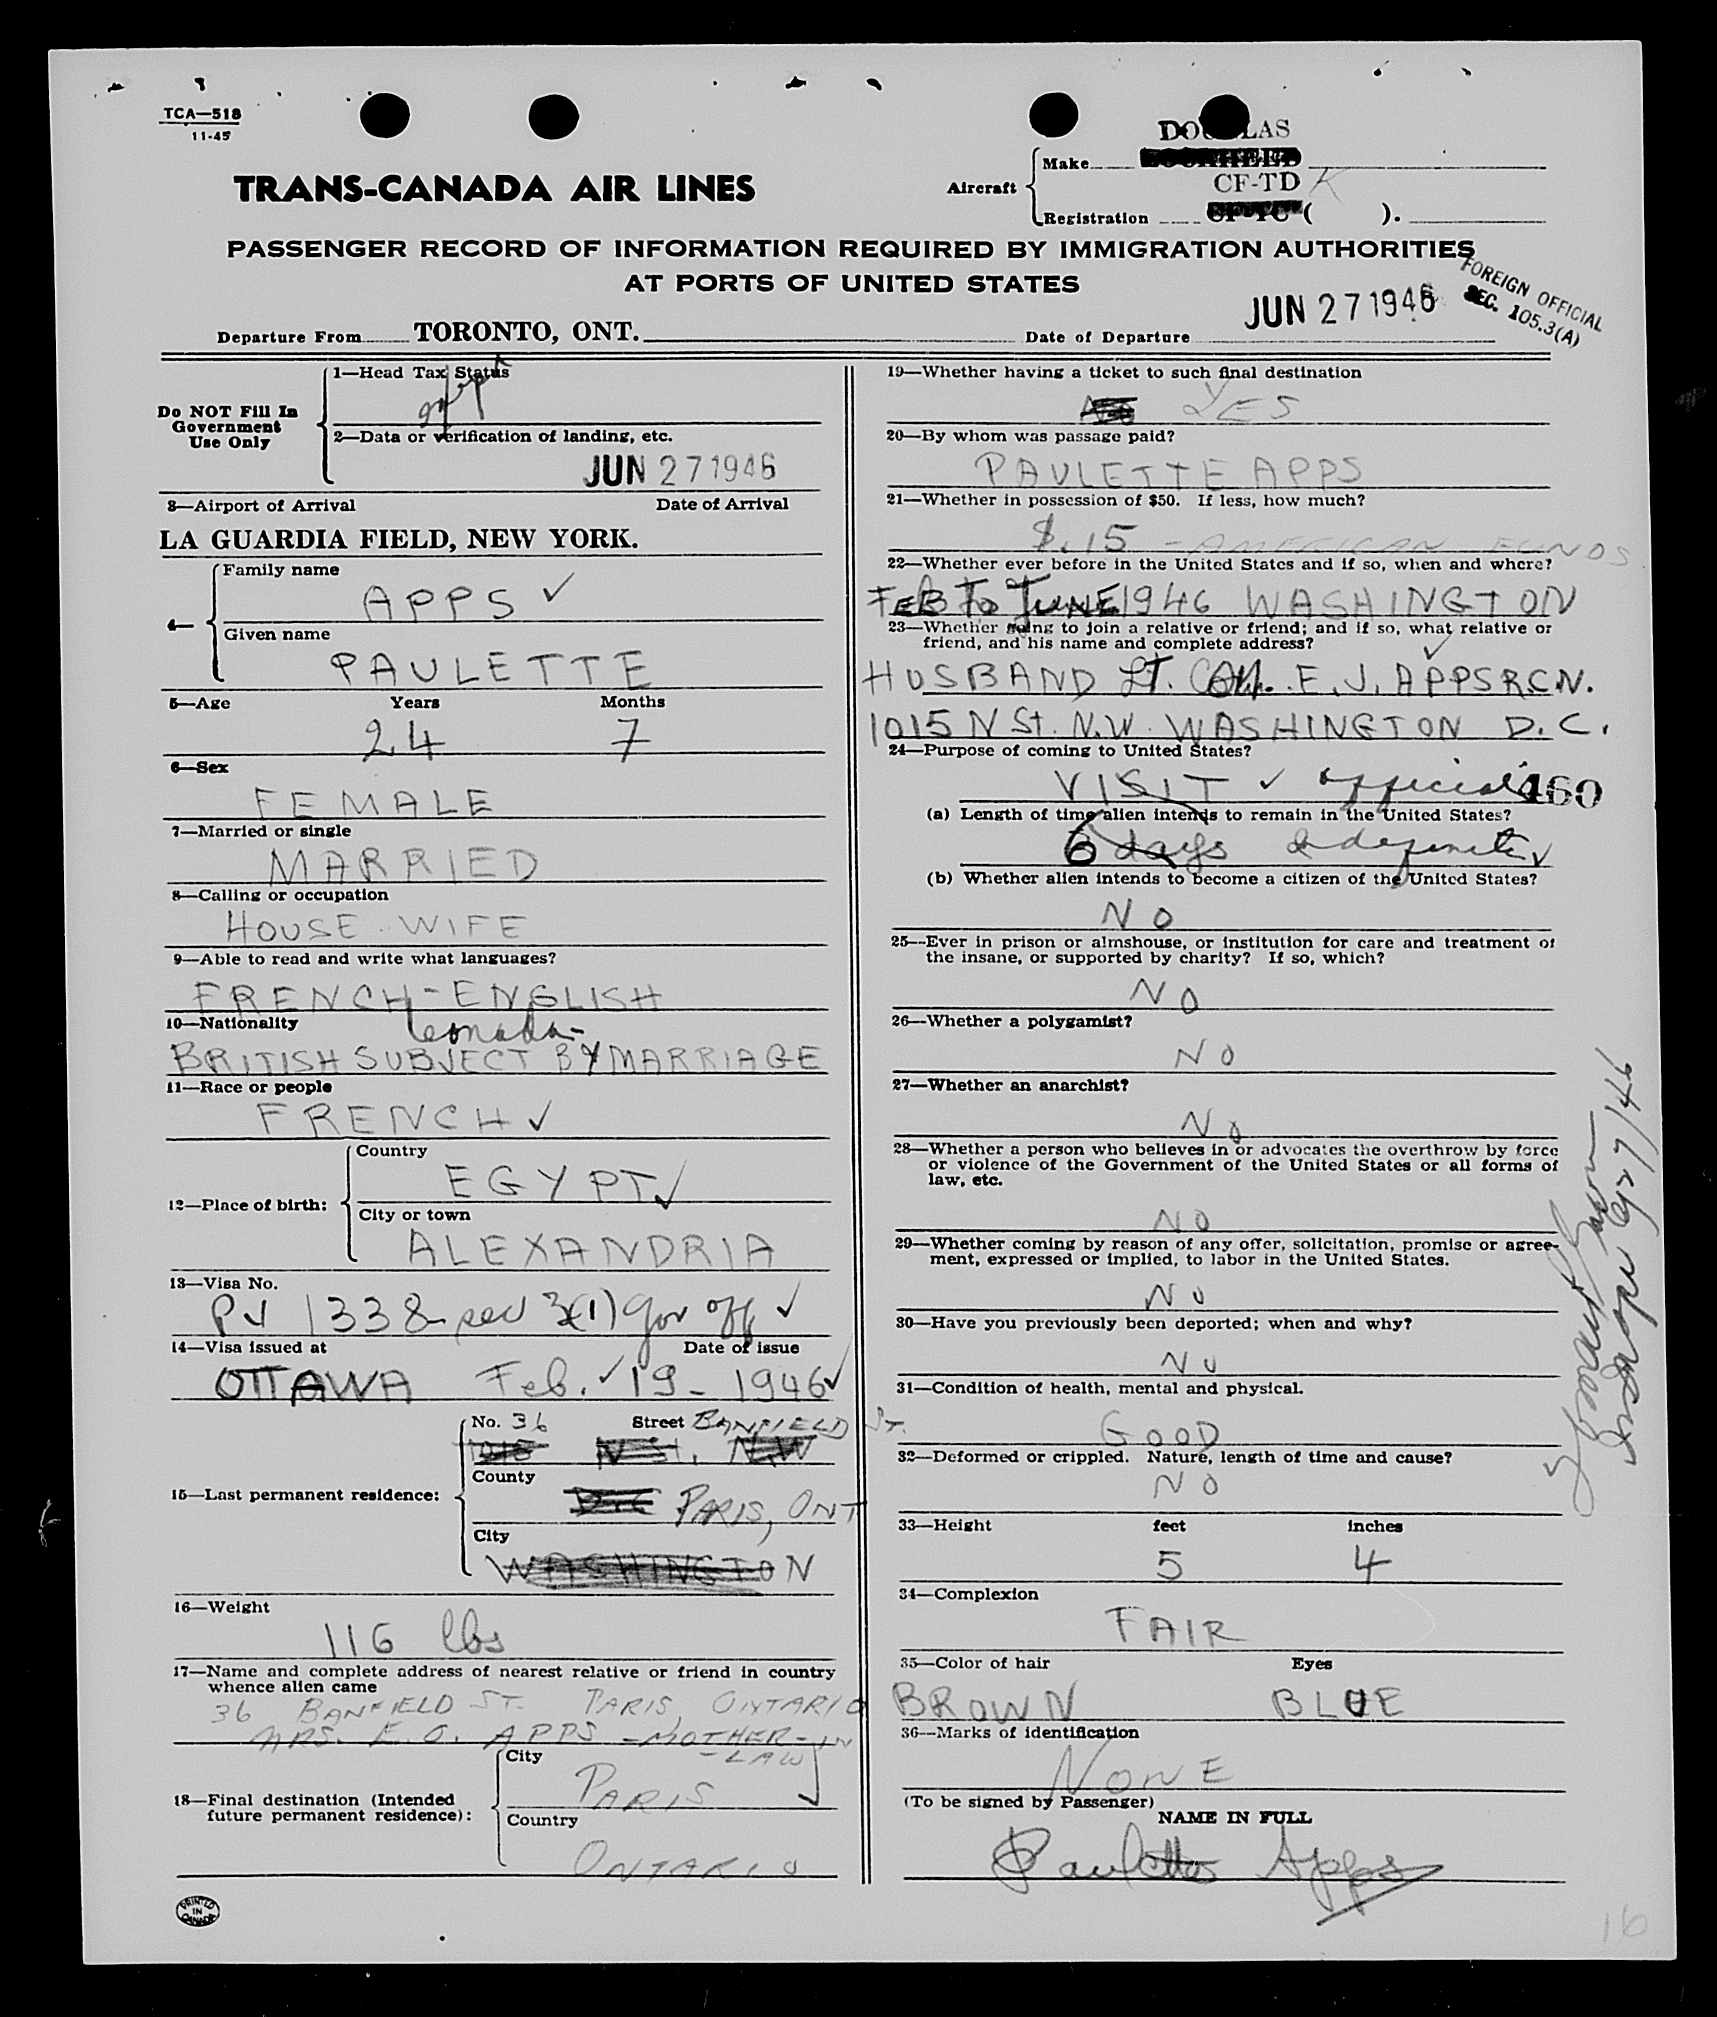 TCA—518
11-45
DOUGLAS
Aircraft
Make
CF-TD K
Registration ( ).
TRANS-CANADA AIR LINES
PASSENGER RECORD OF INFORMATION REQUIRED BY IMMIGRATION AUTHORITIES
AT PORTS OF UNITED STATES
FOREIGN OFFICIAL
SEC. 105.3(A)
Departure From TORONTO, ONT.
Date of Departure JUN 27 1946
Do NOT Fill In
Government
Use Only
1—Head Tax Status
2—Data or verification of landing, etc.
JUN 27 1946
3—Airport of Arrival Date of Arrival
LA GUARDIA FIELD, NEW YORK.
4—
Family name
APPS ✓
Given name
PAULETTE
5—Age Years Months
24 7
6—Sex
FEMALE
7—Married or single
MARRIED
8—Calling or occupation
HOUSE WIFE
9—Able to read and write what languages?
FRENCH - ENGLISH
10—Nationality
Canada-
BRITISH SUBJECT BY MARRIAGE
11—Race or people
FRENCH ✓
12—Place of birth:
Country
EGYPT ✓
City or town
ALEXANDRIA
13—Visa No.
PV 1338 sec 3(1) gov off ✓
14—Visa issued at Date of issue
OTTAWA Feb. ✓ 19 - 1946 ✓
15—Last permanent residence:
No. 36 Street BANFIELD ST.
1015 N St. N.W
County
D.C PARIS, ONT
City
WASHINGTON
16—Weight
116 lbs
17—Name and complete address of nearest relative or friend in country
whence alien came
36 BANFIELD ST. PARIS, ONTARIO
MRS. E. O. APPS - MOTHER-IN
-LAW
18—Final destination (Intended
future permanent residence):
City
PARIS
Country
ONTARIO
PRINTED
IN
CANADA
19—Whether having a ticket to such final destination
YES
20—By whom was passage paid?
PAULETTE APPS
21—Whether in possession of $50. If less, how much?
$.15 - AMERICAN FUNDS
22—Whether ever before in the United States and if so, when and where?
FEB TO JUNE 1946 WASHINGTON
23—Whether going to join a relative or friend; and if so, what relative or
friend, and his name and complete address?
HUSBAND LT. E. J. APPS R.C.N.
1015 N St. N.W. WASHINGTON D.C.
24—Purpose of coming to United States?
VISIT ✓ official 460
(a) Length of time alien intends to remain in the United States?
6 days Indefinite ✓
(b) Whether alien intends to become a citizen of the United States?
NO
25—Ever in prison or almshouse, or institution for care and treatment of
the insane, or supported by charity? If so, which?
NO
26—Whether a polygamist?
NO
27—Whether an anarchist?
NO
28—Whether a person who believes in or advocates the overthrow by force
or violence of the Government of the United States or all forms of
law, etc.
NO
29—Whether coming by reason of any offer, solicitation, promise or agree-
ment, expressed or implied, to labor in the United States.
NO
30—Have you previously been deported; when and why?
NO
31—Condition of health, mental and physical.
GOOD
32—Deformed or crippled. Nature, length of time and cause?
NO
33—Height feet inches
5 4
34—Complexion
FAIR
35—Color of hair Eyes
BROWN BLUE
36—Marks of identification
NONE
(To be signed by Passenger)
NAME IN FULL
Paulette Apps
16